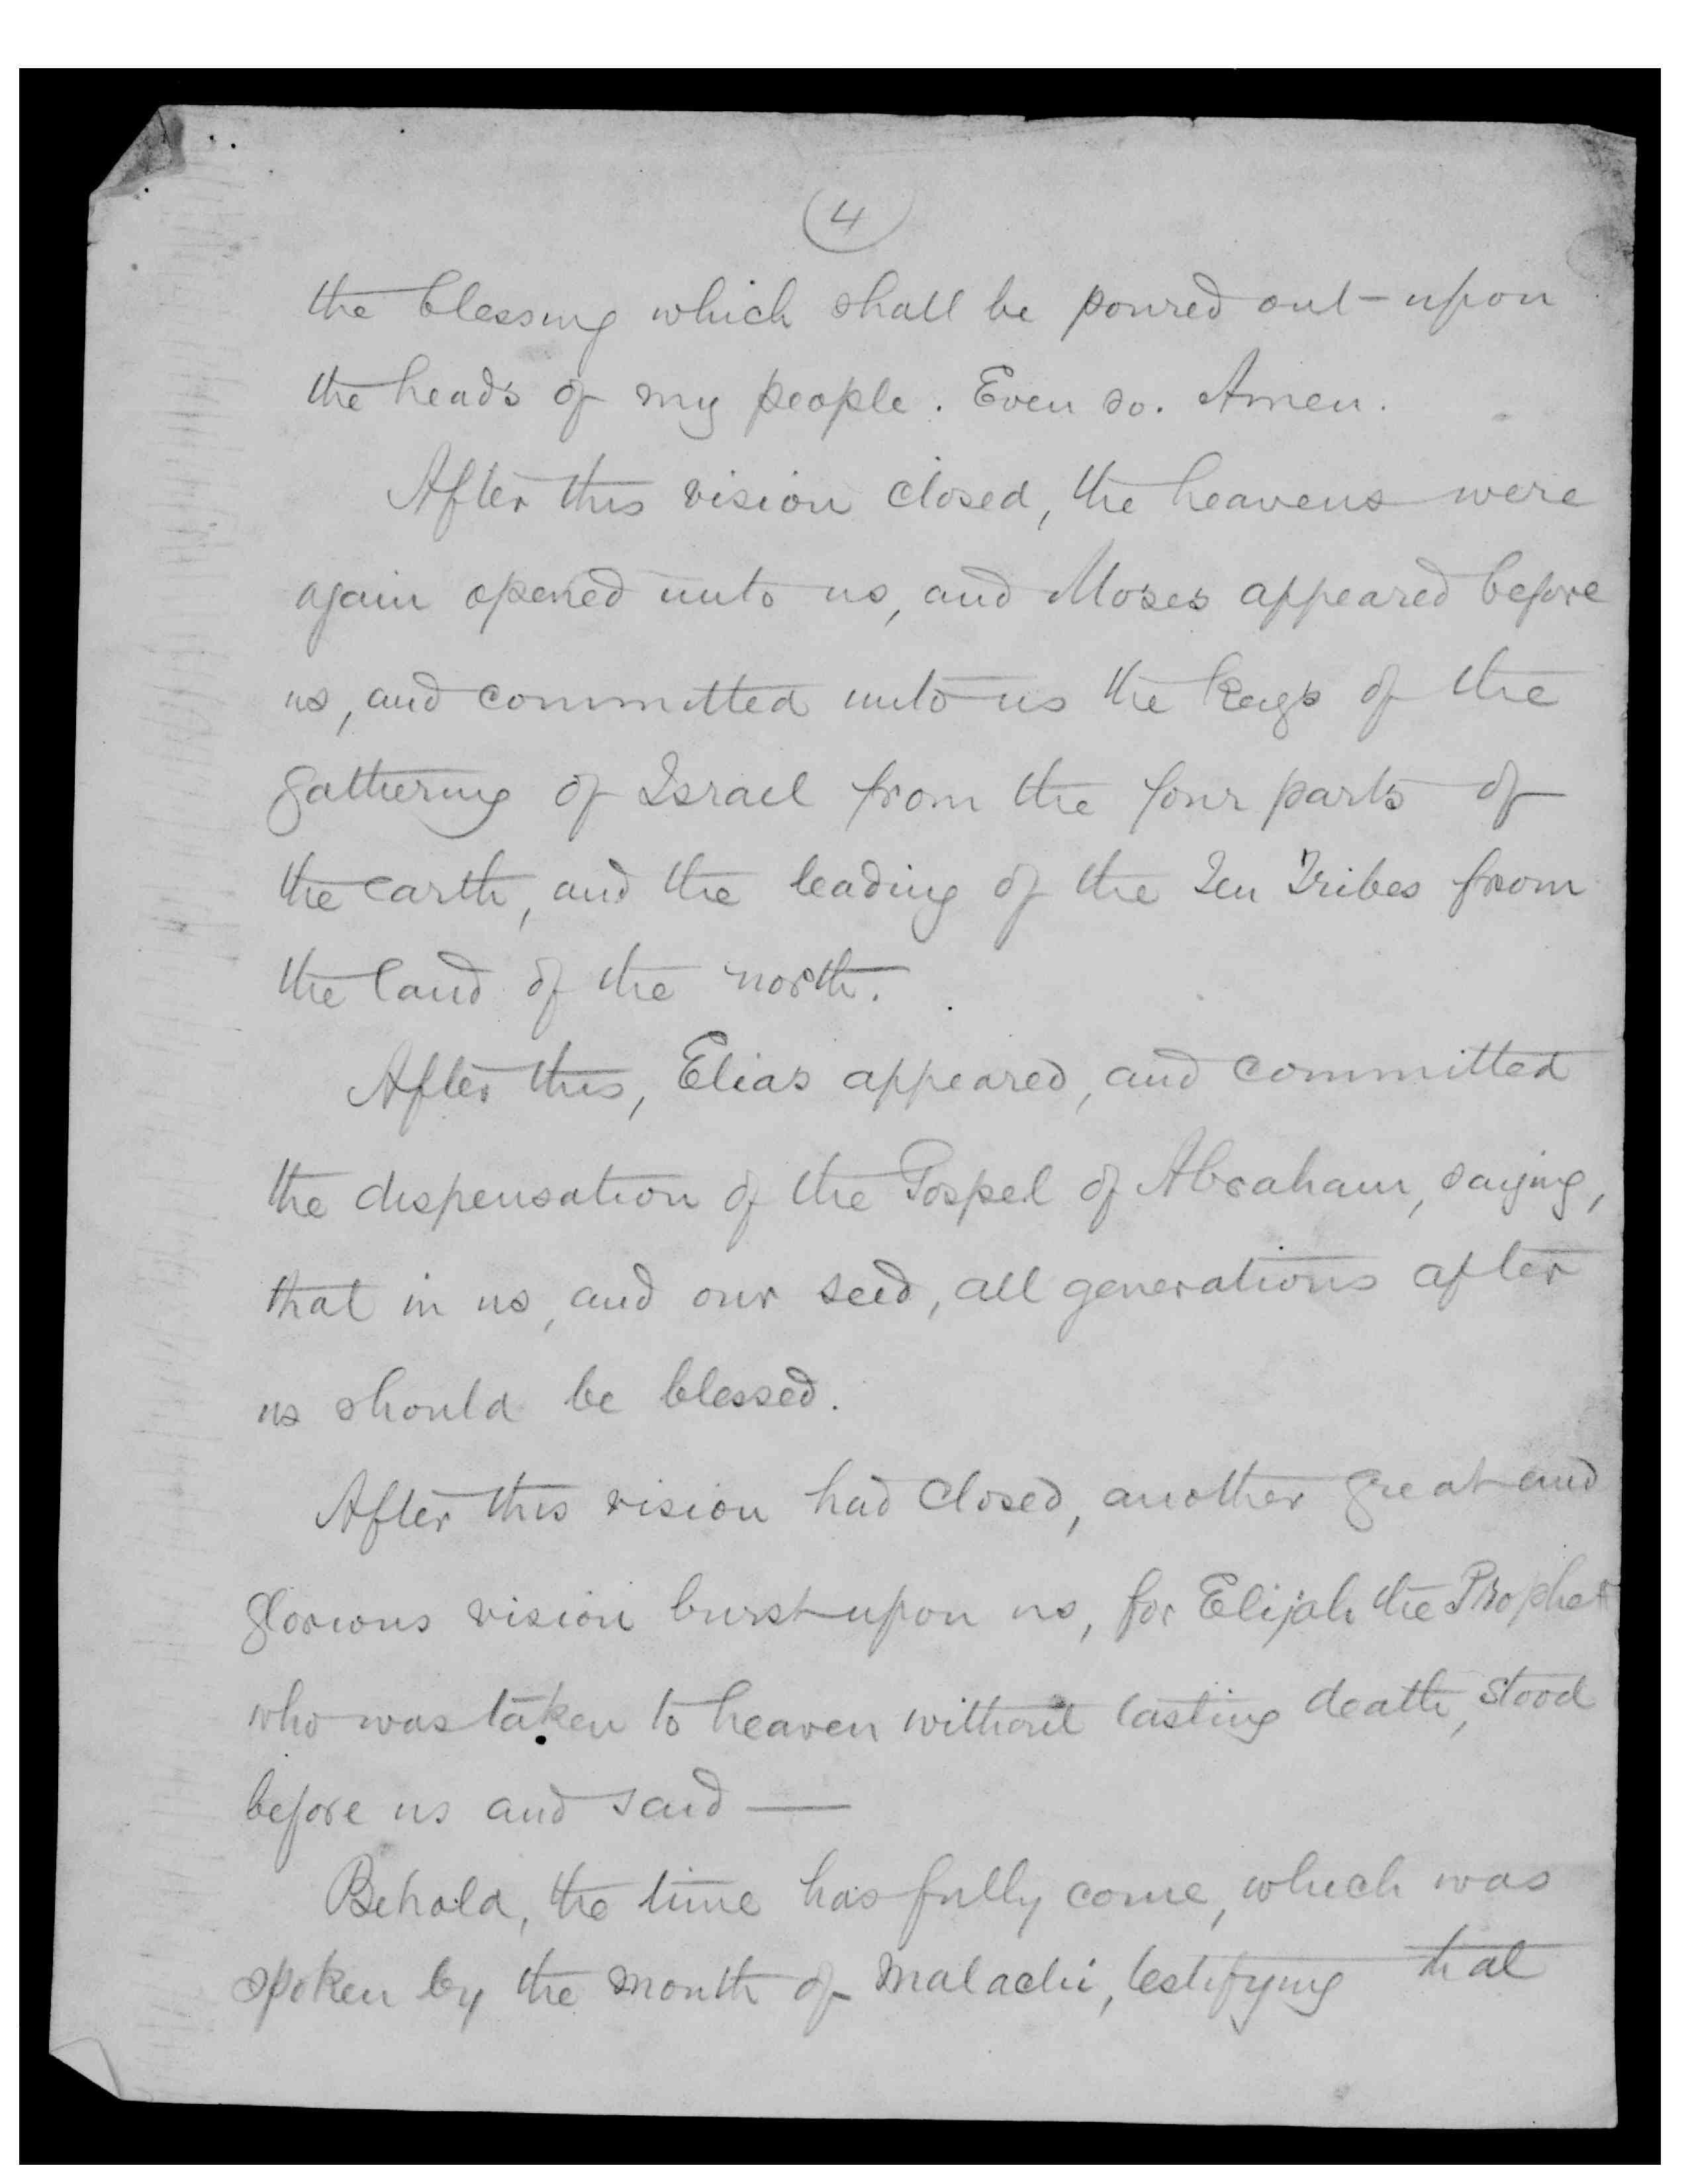 4
the blessing which shall be poured out-upon
the heads of my people. Even so. Amen.
After this vision closed, the heavens were
again opened unto us, and Moses appeared before
us, and committed unto us the keys of the
gathering of Israel from the four parts of
the earth, and the leading of the Ten Tribes from
the land of the north.
After this, Elias appeared, and committed
the dispensation of the Gospel of Abraham, saying,
that in us, and our seed, all generations after
us should be blessed.
After this vision had closed, another great and
glorious vision burst upon us, for Elijah the Prophet
who was taken to heaven without tasting death, stood
before us and said —
Behold, the time has fully come, which was
spoken by the mouth of Malachi, testifying that